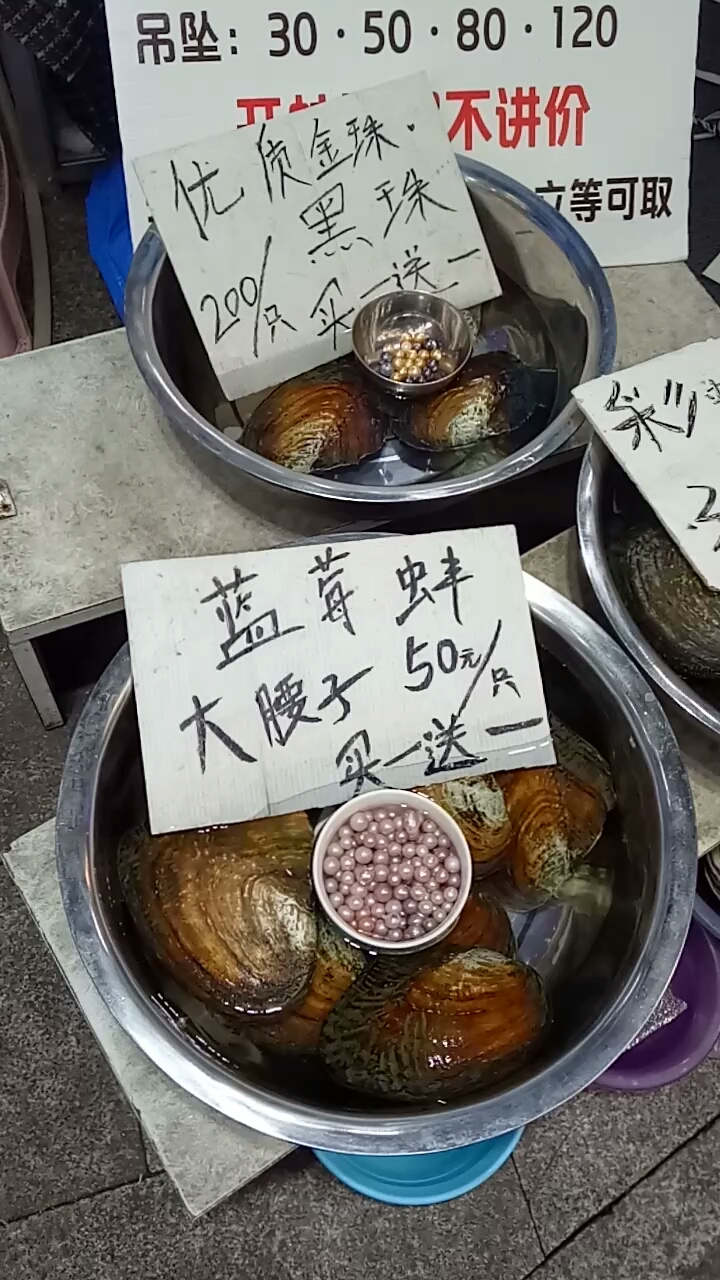 吊坠：30·50·80·120
不讲价
立等可取
优质金珠.
黑珠
200/只 买一送一
蓝莓蚌
大腰子 50元/只
买一送一